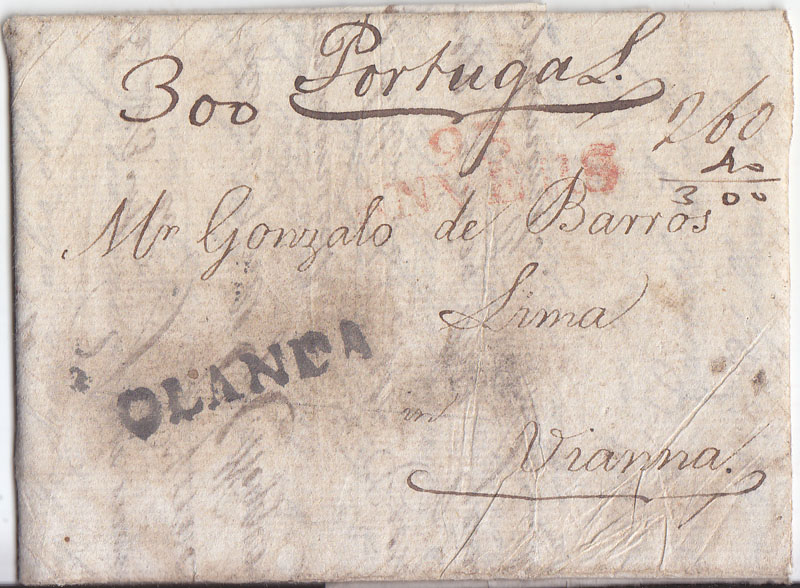 300 Portugal.
260
40
300
93
ANVERS
Mr Gonzalo de Barros
Lima
OLANDA
in
Vianna.